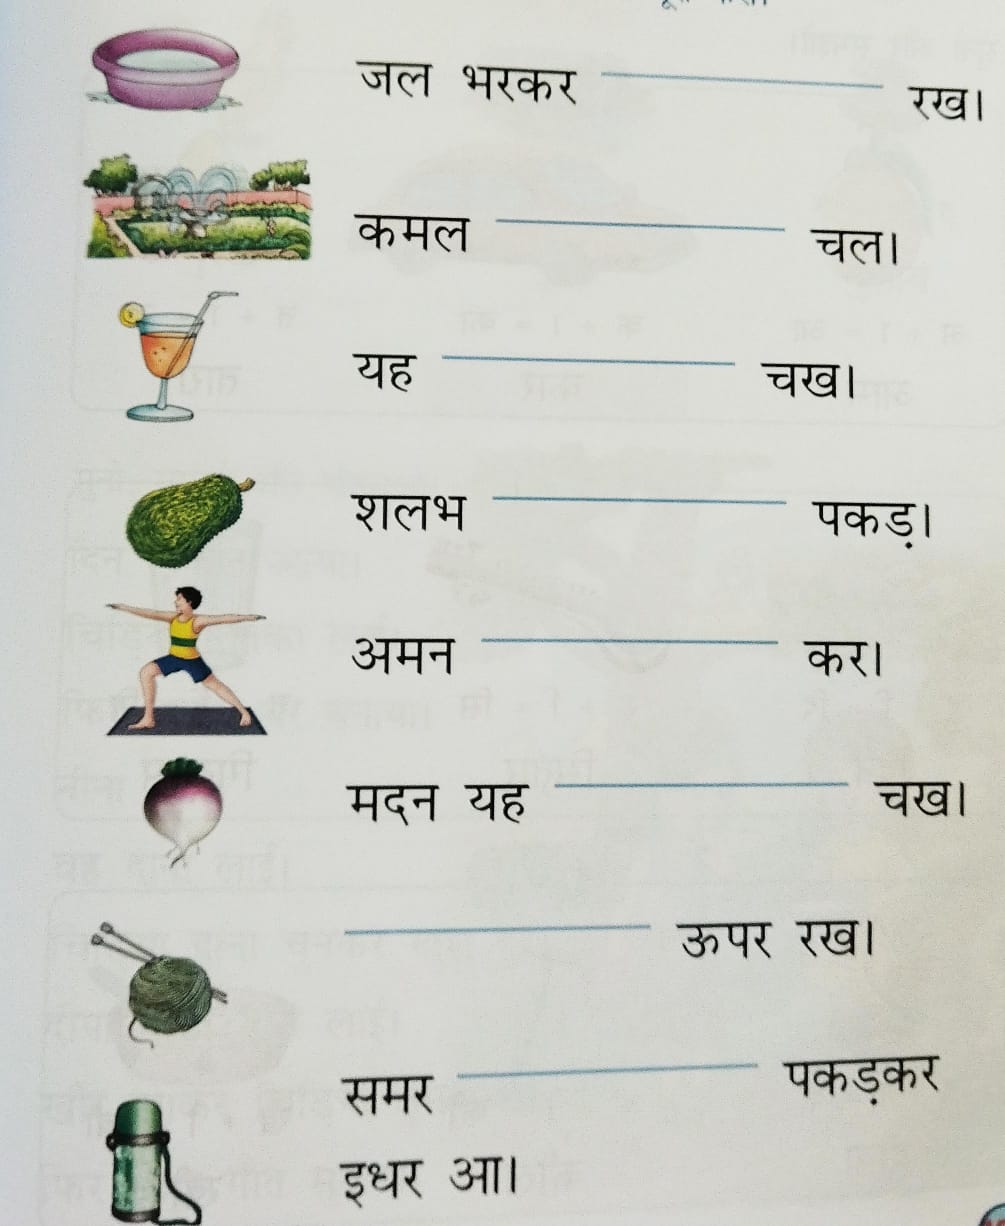 जल भरकर ____________ रख।
कमल ____________ चल।
यह ____________ चख।
शलभ ____________ पकड़।
अमन ____________ कर।
मदन यह ____________ चख।
____________ ऊपर रख।
समर ____________ पकड़कर
इधर आ।